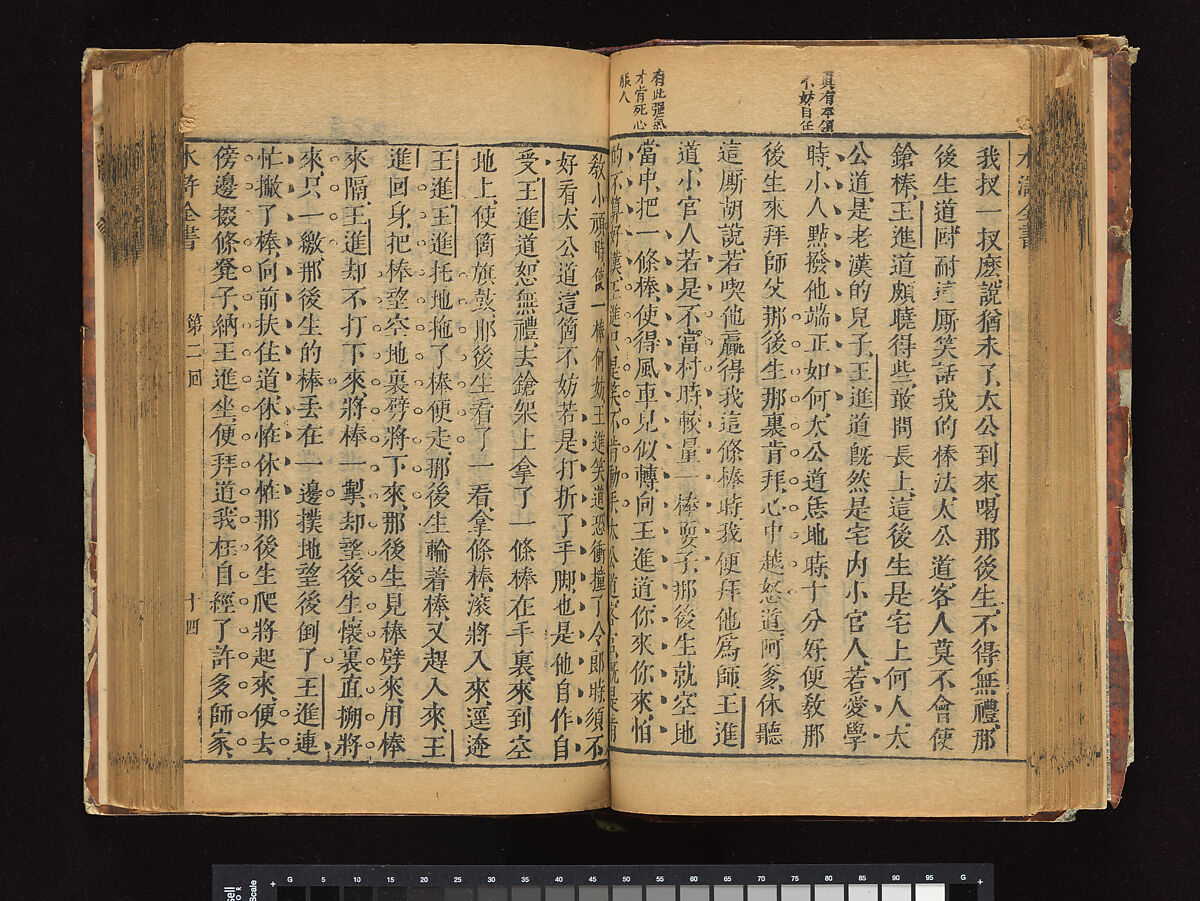 真有本領
不妨自任
有此強氣
才肯死心
服人
我扠一扠麽說猶未了太公到來喝那後生不得無禮那
後生道叵耐這厮笑話我的棒法太公道客人莫不會使
鎗棒王進道頗曉得些敢問長上這後生是宅上何人太
公道是老漢的兒子王進道旣然是宅內小官人若愛學
時小人點撥他端正如何太公道恁地時十分好便敎那
後生來拜師父那後生那裏肯拜心中越怒道阿爹休聽
這厮胡說若喫他贏得我這條棒時我便拜他爲師王進
道小官人若是不當村時較量一棒耍子那後生就空地
當中把一條棒使得風車兒似轉向王進道你來你來怕
的不算好漢王進只是笑不肯動手太公道客官旣是肯
敎小頑時使一棒何妨王進笑道恐衝撞了令郎時須不
好看太公道這箇不妨若是打折了手脚也是他自作自
受王進道恕無禮去鎗架上拿了一條棒在手裏來到空
地上使箇旗鼓那後生看了一看拿條棒滾將入來逕逩
王進王進托地拖了棒便走那後生輪着棒又趕入來王
進回身把棒望空地裏劈將下來那後生見棒劈來用棒
來隔王進却不打下來將棒一掣却望後生懷裏直搠將
來只一繳那後生的棒丢在一邊撲地望後倒了王進連
忙撇了棒向前扶住道休恠休恠那後生爬將起來便去
傍邊掇條凳子納王進坐便拜道我枉自經了許多師家
水滸全書 第二回 十四
5 10 15 20 25 30 35 40 45 50 55 60 65 70 75 80 85 90 95
Scale